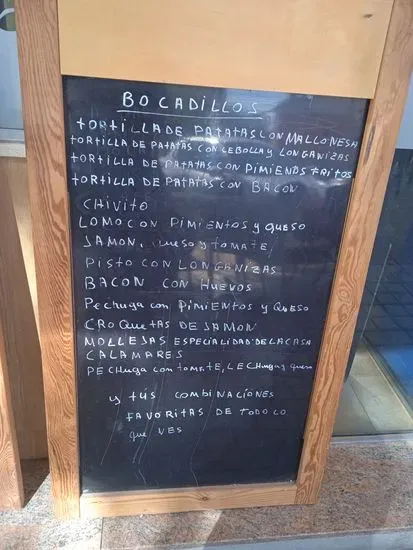 BOCADILLOS
TORTILLA DE PATATAS CON MALLONESA
TORTILLA DE PATATAS CON CEBOLLA Y LONGANIZAS
TORTILLA DE PATATAS CON PIMIENOS FRITOS
TORTILLA DE PATATAS CON BACON
CHIVITO
LOMO CON PIMIENTOS y QUESO
JAMON, QUESO y TOMATE
PISTO CON LONGANIZAS
BACON CON HUEVOS
Pechuga con PIMIENTOS y QUESO
CROQUETAS DE JAMON
MOLLEJAS ESPECIALIDAD DE LA CASA
CALAMARES
PECHUGA CON TOMATE, LECHUGA y queso
y tús COMBINACIONES
FAVORITAS DE TODO LO
que VES